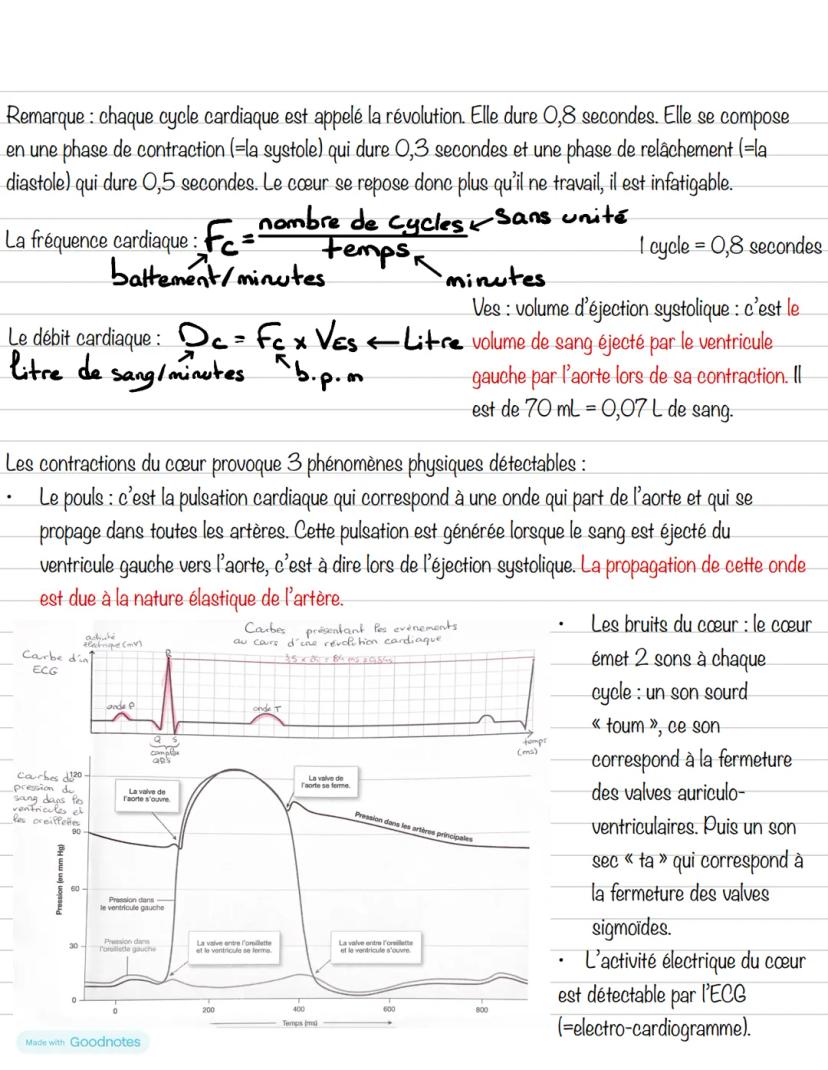 Remarque : chaque cycle cardiaque est appelé la révolution. Elle dure 0,8 secondes. Elle se compose
en une phase de contraction (=la systole) qui dure 0,3 secondes et une phase de relâchement (=la
diastole) qui dure 0,5 secondes. Le cœur se repose donc plus qu'il ne travail, il est infatigable.
La fréquence cardiaque : Fc = nombre de cycles ← Sans unité
temps
1 cycle = 0,8 secondes
battement/minutes
minutes
Ves : volume d'éjection systolique : c'est le
volume de sang éjecté par le ventricule
gauche par l'aorte lors de sa contraction. Il
est de 70 mL = 0,07 L de sang.
Le débit cardiaque : Dc = Fc x VES ← Litre
litre de sang/minutes
b.p.m
Les contractions du cœur provoque 3 phénomènes physiques détectables :
• Le pouls : c'est la pulsation cardiaque qui correspond à une onde qui part de l'aorte et qui se
propage dans toutes les artères. Cette pulsation est générée lorsque le sang est éjecté du
ventricule gauche vers l'aorte, c'est à dire lors de l'éjection systolique. La propagation de cette onde
est due à la nature élastique de l'artère.
Courbes présentant les evènements
au cours d'une révolution cardiaque
Courbe d'un
ECG
activité
électrique (mV)
R
onde P
onde T
Q S
complexe
QRS
temps
(ms)
Courbes de
pression du
sang dans les
ventricules et
les oreillettes
Pression (en mm Hg)
120
90
60
30
0
La valve de
l'aorte s'ouvre.
La valve de
l'aorte se ferme.
Pression dans les artères principales
Pression dans
le ventricule gauche
Pression dans
l'oreillette gauche
La valve entre l'oreillette
et le ventricule se ferme.
La valve entre l'oreillette
et le ventricule s'ouvre.
0
200
400
600
800
Temps (ms)
• Les bruits du cœur : le cœur
émet 2 sons à chaque
cycle : un son sourd
« toum », ce son
correspond à la fermeture
des valves auriculo-
ventriculaires. Puis un son
sec « ta » qui correspond à
la fermeture des valves
sigmoïdes.
• L'activité électrique du cœur
est détectable par l'ECG
(=electro-cardiogramme).
Made with Goodnotes